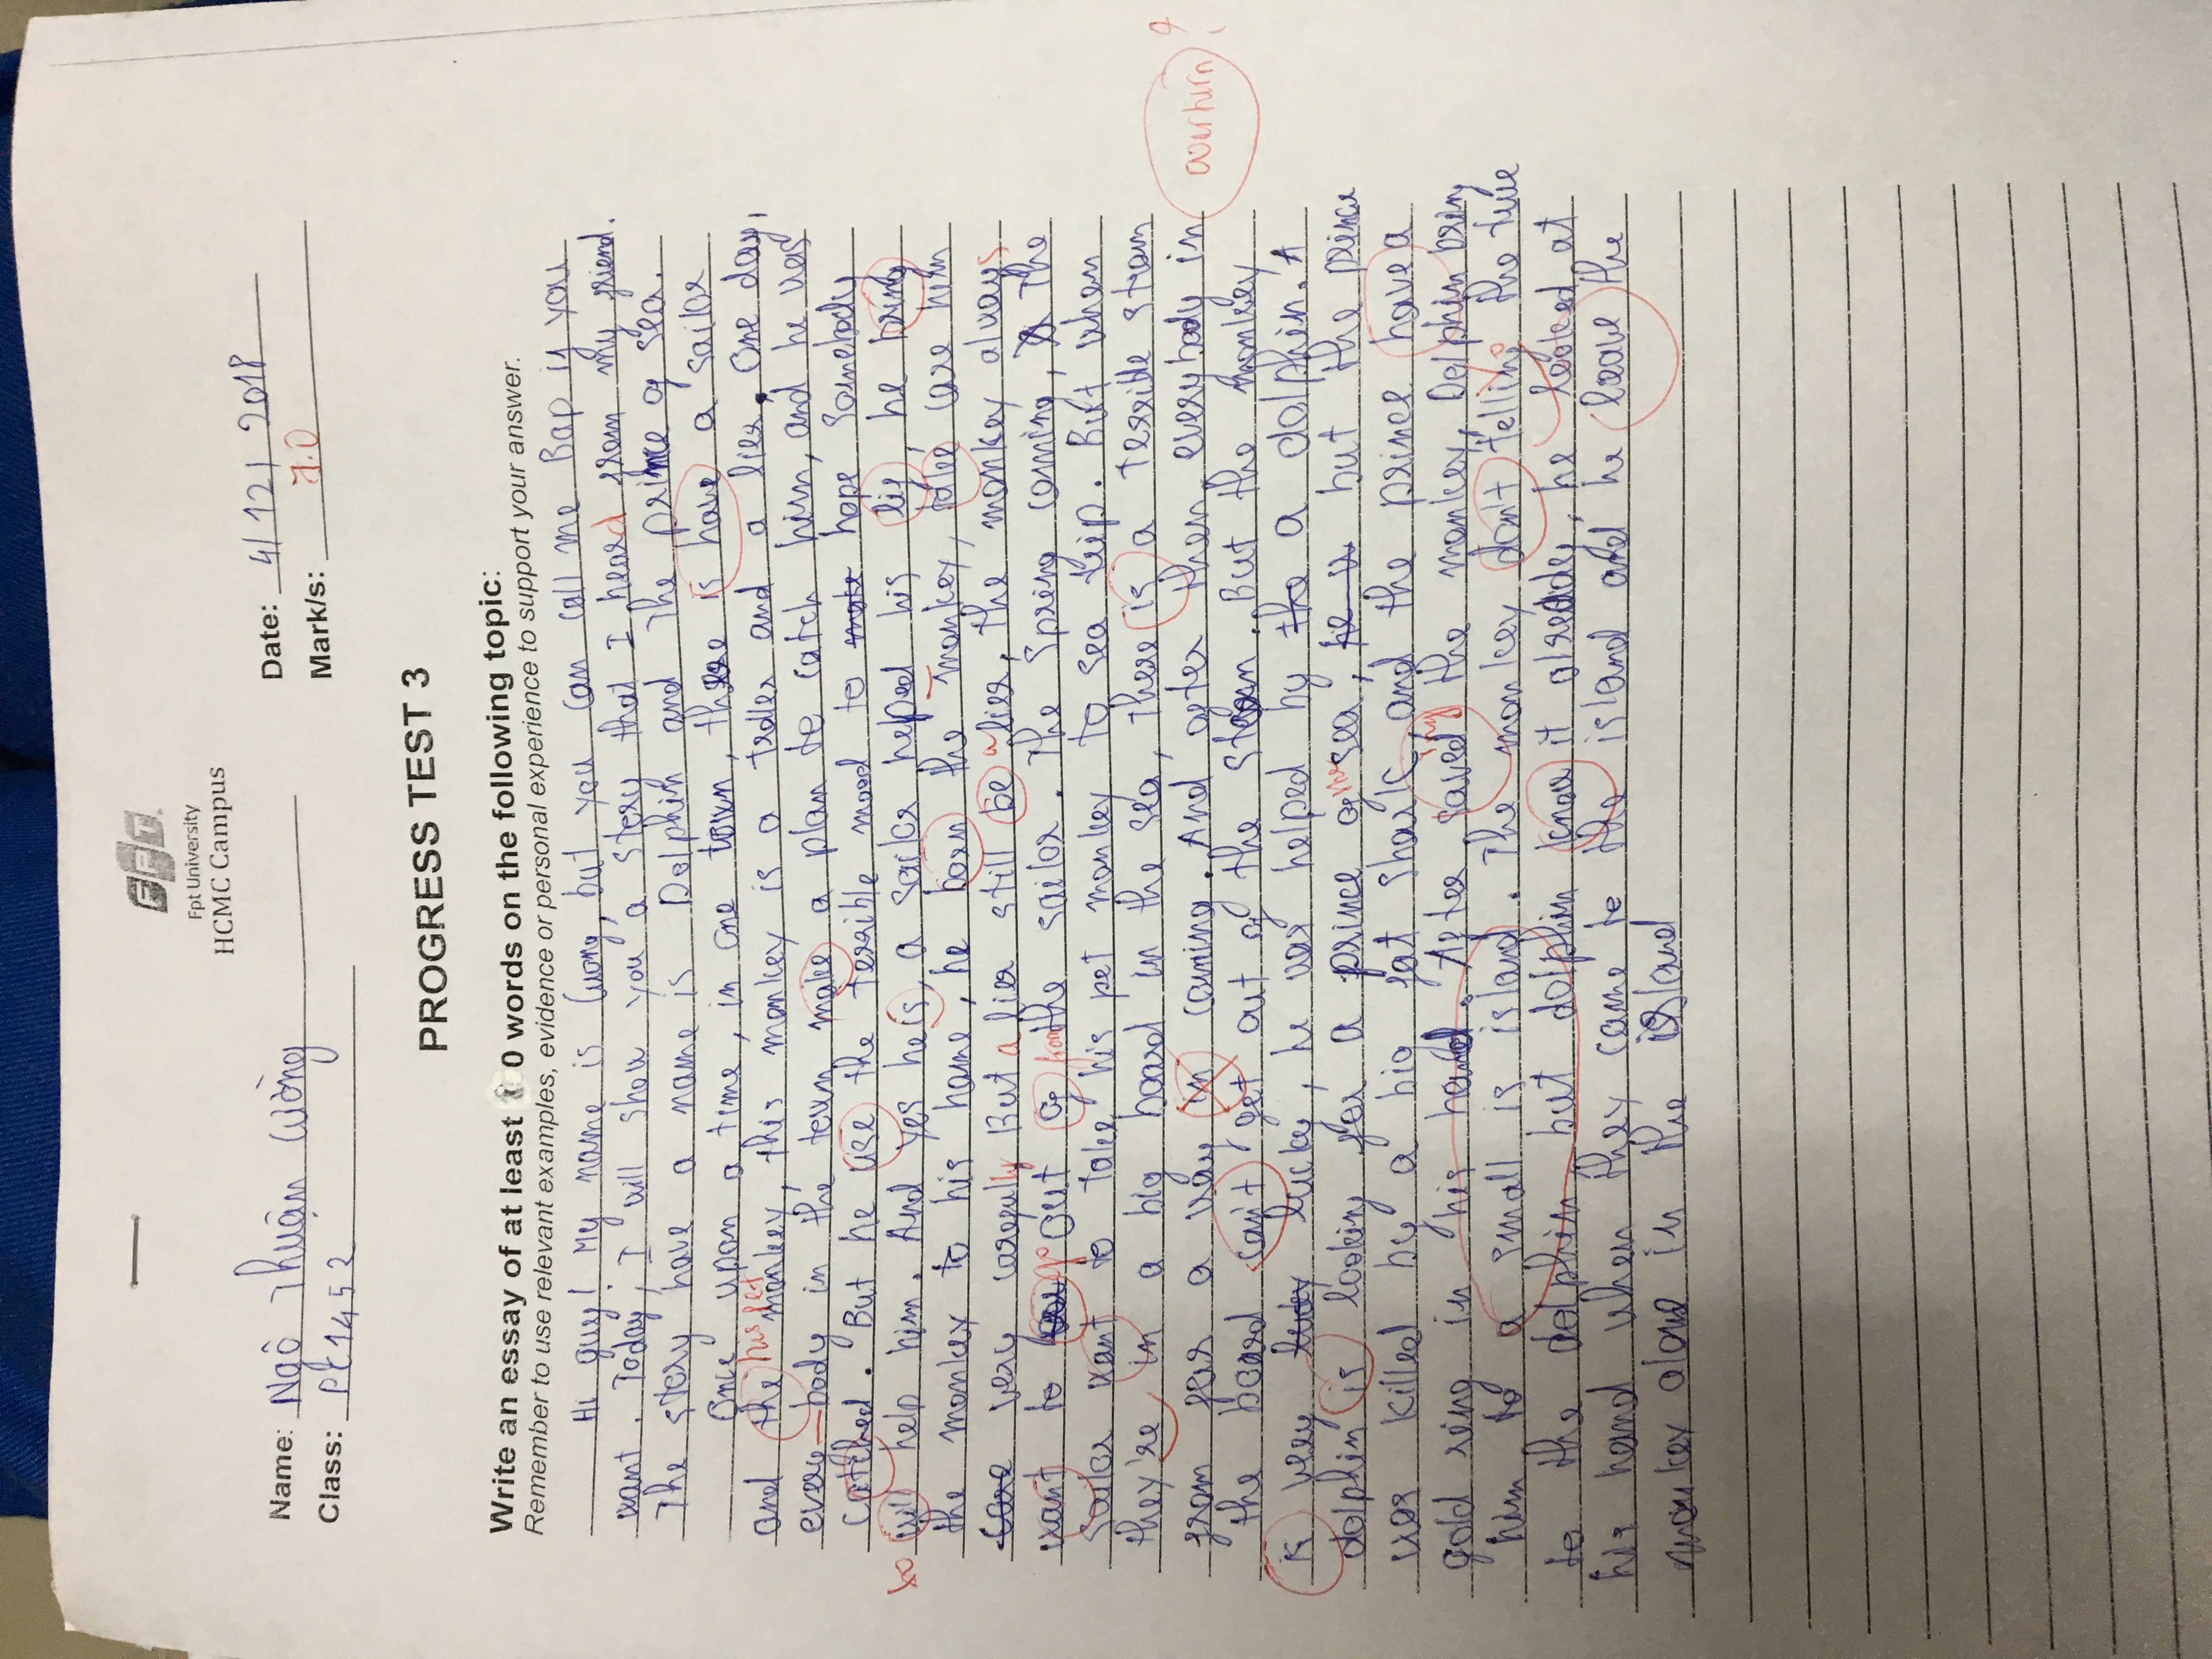 FPT
Fpt University
HCMC Campus
Name: Ngô Thuận Cường
Date: 4/12/2018
Class: PC1452
Mark/s: 7.0
PROGRESS TEST 3
Write an essay of at least 0 words on the following topic:
Remember to use relevant examples, evidence or personal experience to support your answer.
Hi guy! My name is Cuong, but you can call me Bap if you
want. Today, I will show you a story that I heard from my friend.
The story have a name is Dolphin and The prince of sea.
Once upon a time, in one town, there is have a sailor
and the his pet monkey, this monkey is a troller and a lier. One day,
every-body in the town make a plan to catch him, and he was
catched. But he use the terrible mood to make hope somebody
to will help him. And yes he is, a sailor helped his lif, he bring
the monkey to his home, he born the monkey, take care him
care very carefully But a lier still be a lier, the monkey always
want to go out of from the sailor. The Spring coming, The
sailor want to take his pet monkey to sea trip. But when
they're in a big board in the sea, there is a terrible strom
from far a way in coming. And after then, everybody in overturn?
the board can't get out of the strom. But the monkey
is very lucky lucky, he was helped by the a dolphin. A
dolphin is looking for a prince of the sea, he is but the prince
was killed by a big fat shark, and the prince have a
gold ring in his hand. After saved ing the monkey, Dolphin bring
him to a small is island. The monkey don't telling the true
to the dolphin, but dolphin know it already, he looked at
his hand when they came to the island and he leave the
monkey alone in the island